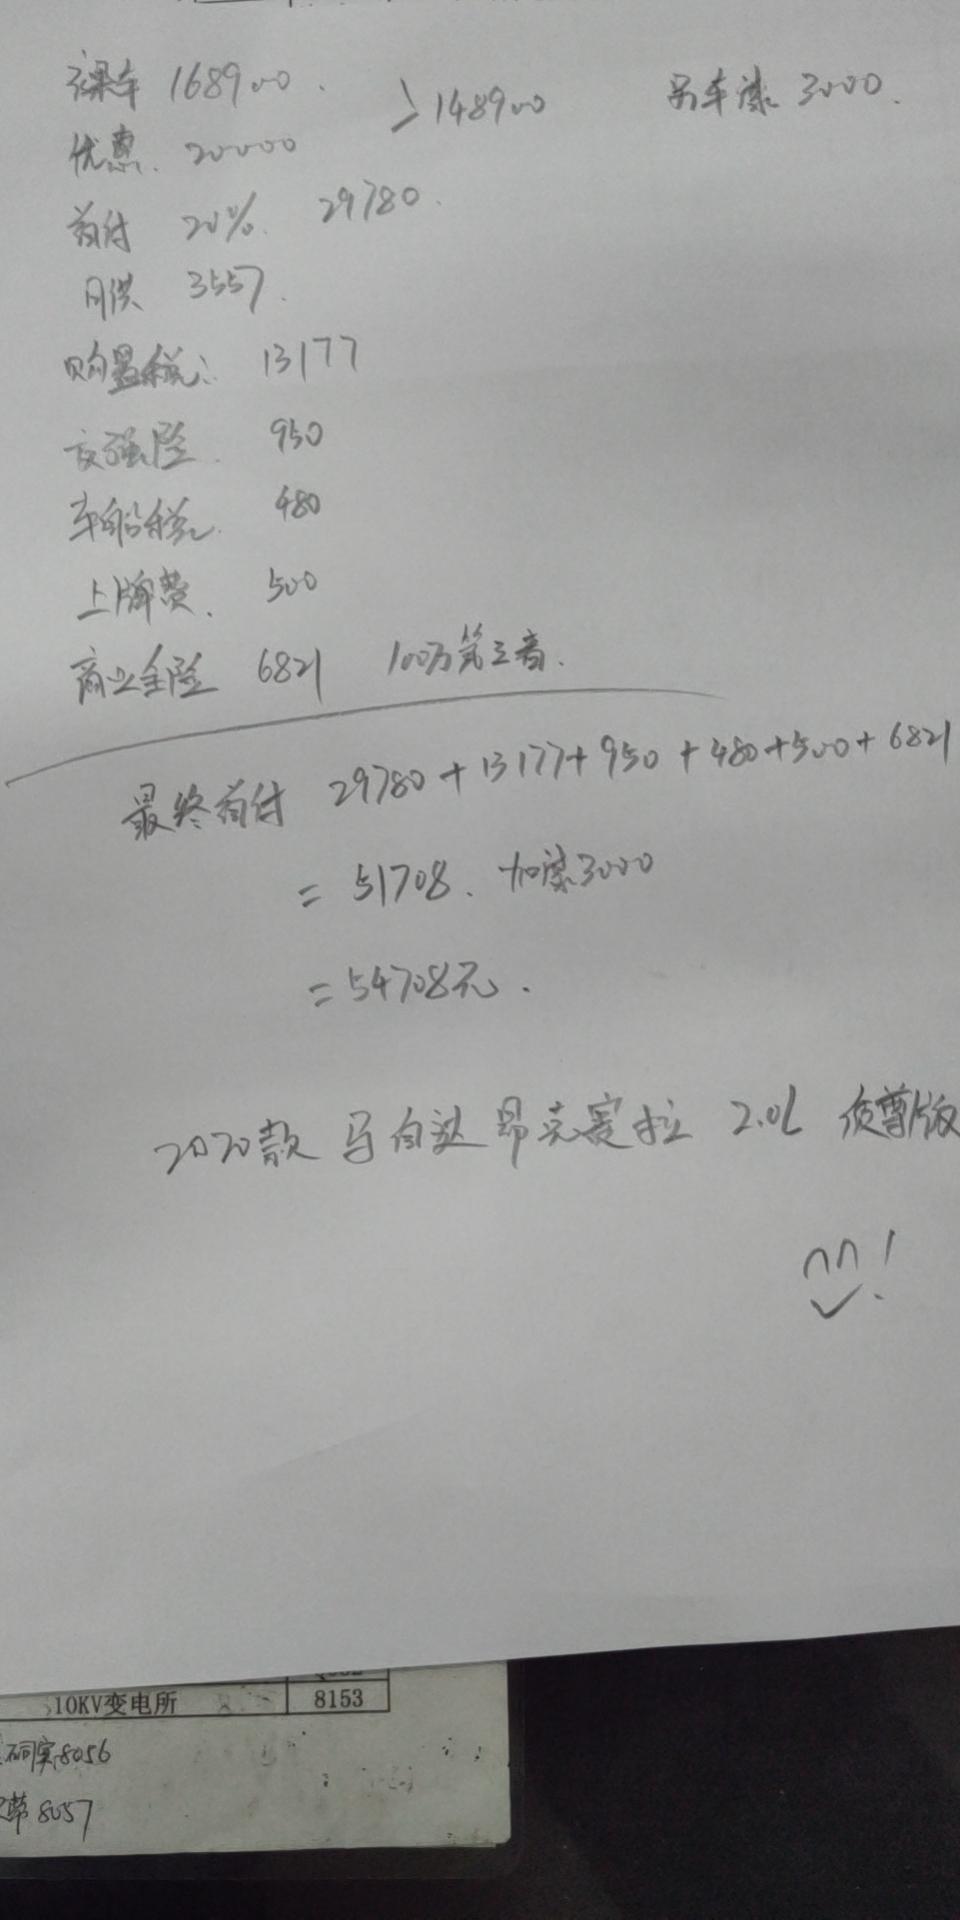 裸车 168900.
>148900
另车漆 3000.
优惠. 20000
首付 20%. 29780.
月供 3557.
购置税: 13177
交强险. 950
车船税. 480
上牌费. 500
商业全险 6821 100万第三者.
最终首付 29780+13177+950+480+500+6821
= 51708. 加漆3000
=54708元.
2020款 马自达 昂克赛拉 2.0L 质尊版
!
10KV变电所 8153
8056
8057